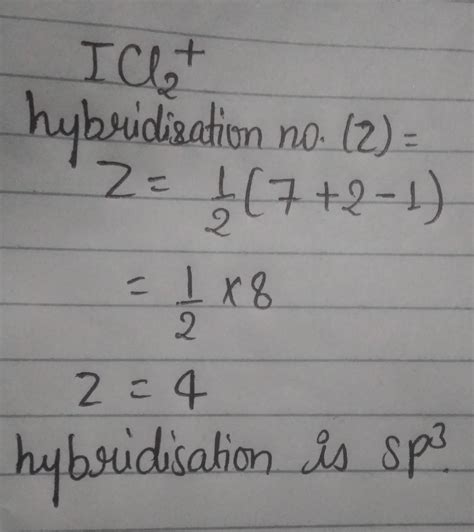 ICl₂⁺
hybridisation no. (Z) =
Z = 1/2 (7+2-1)
= 1/2 × 8
Z = 4
hybridisation is sp³.